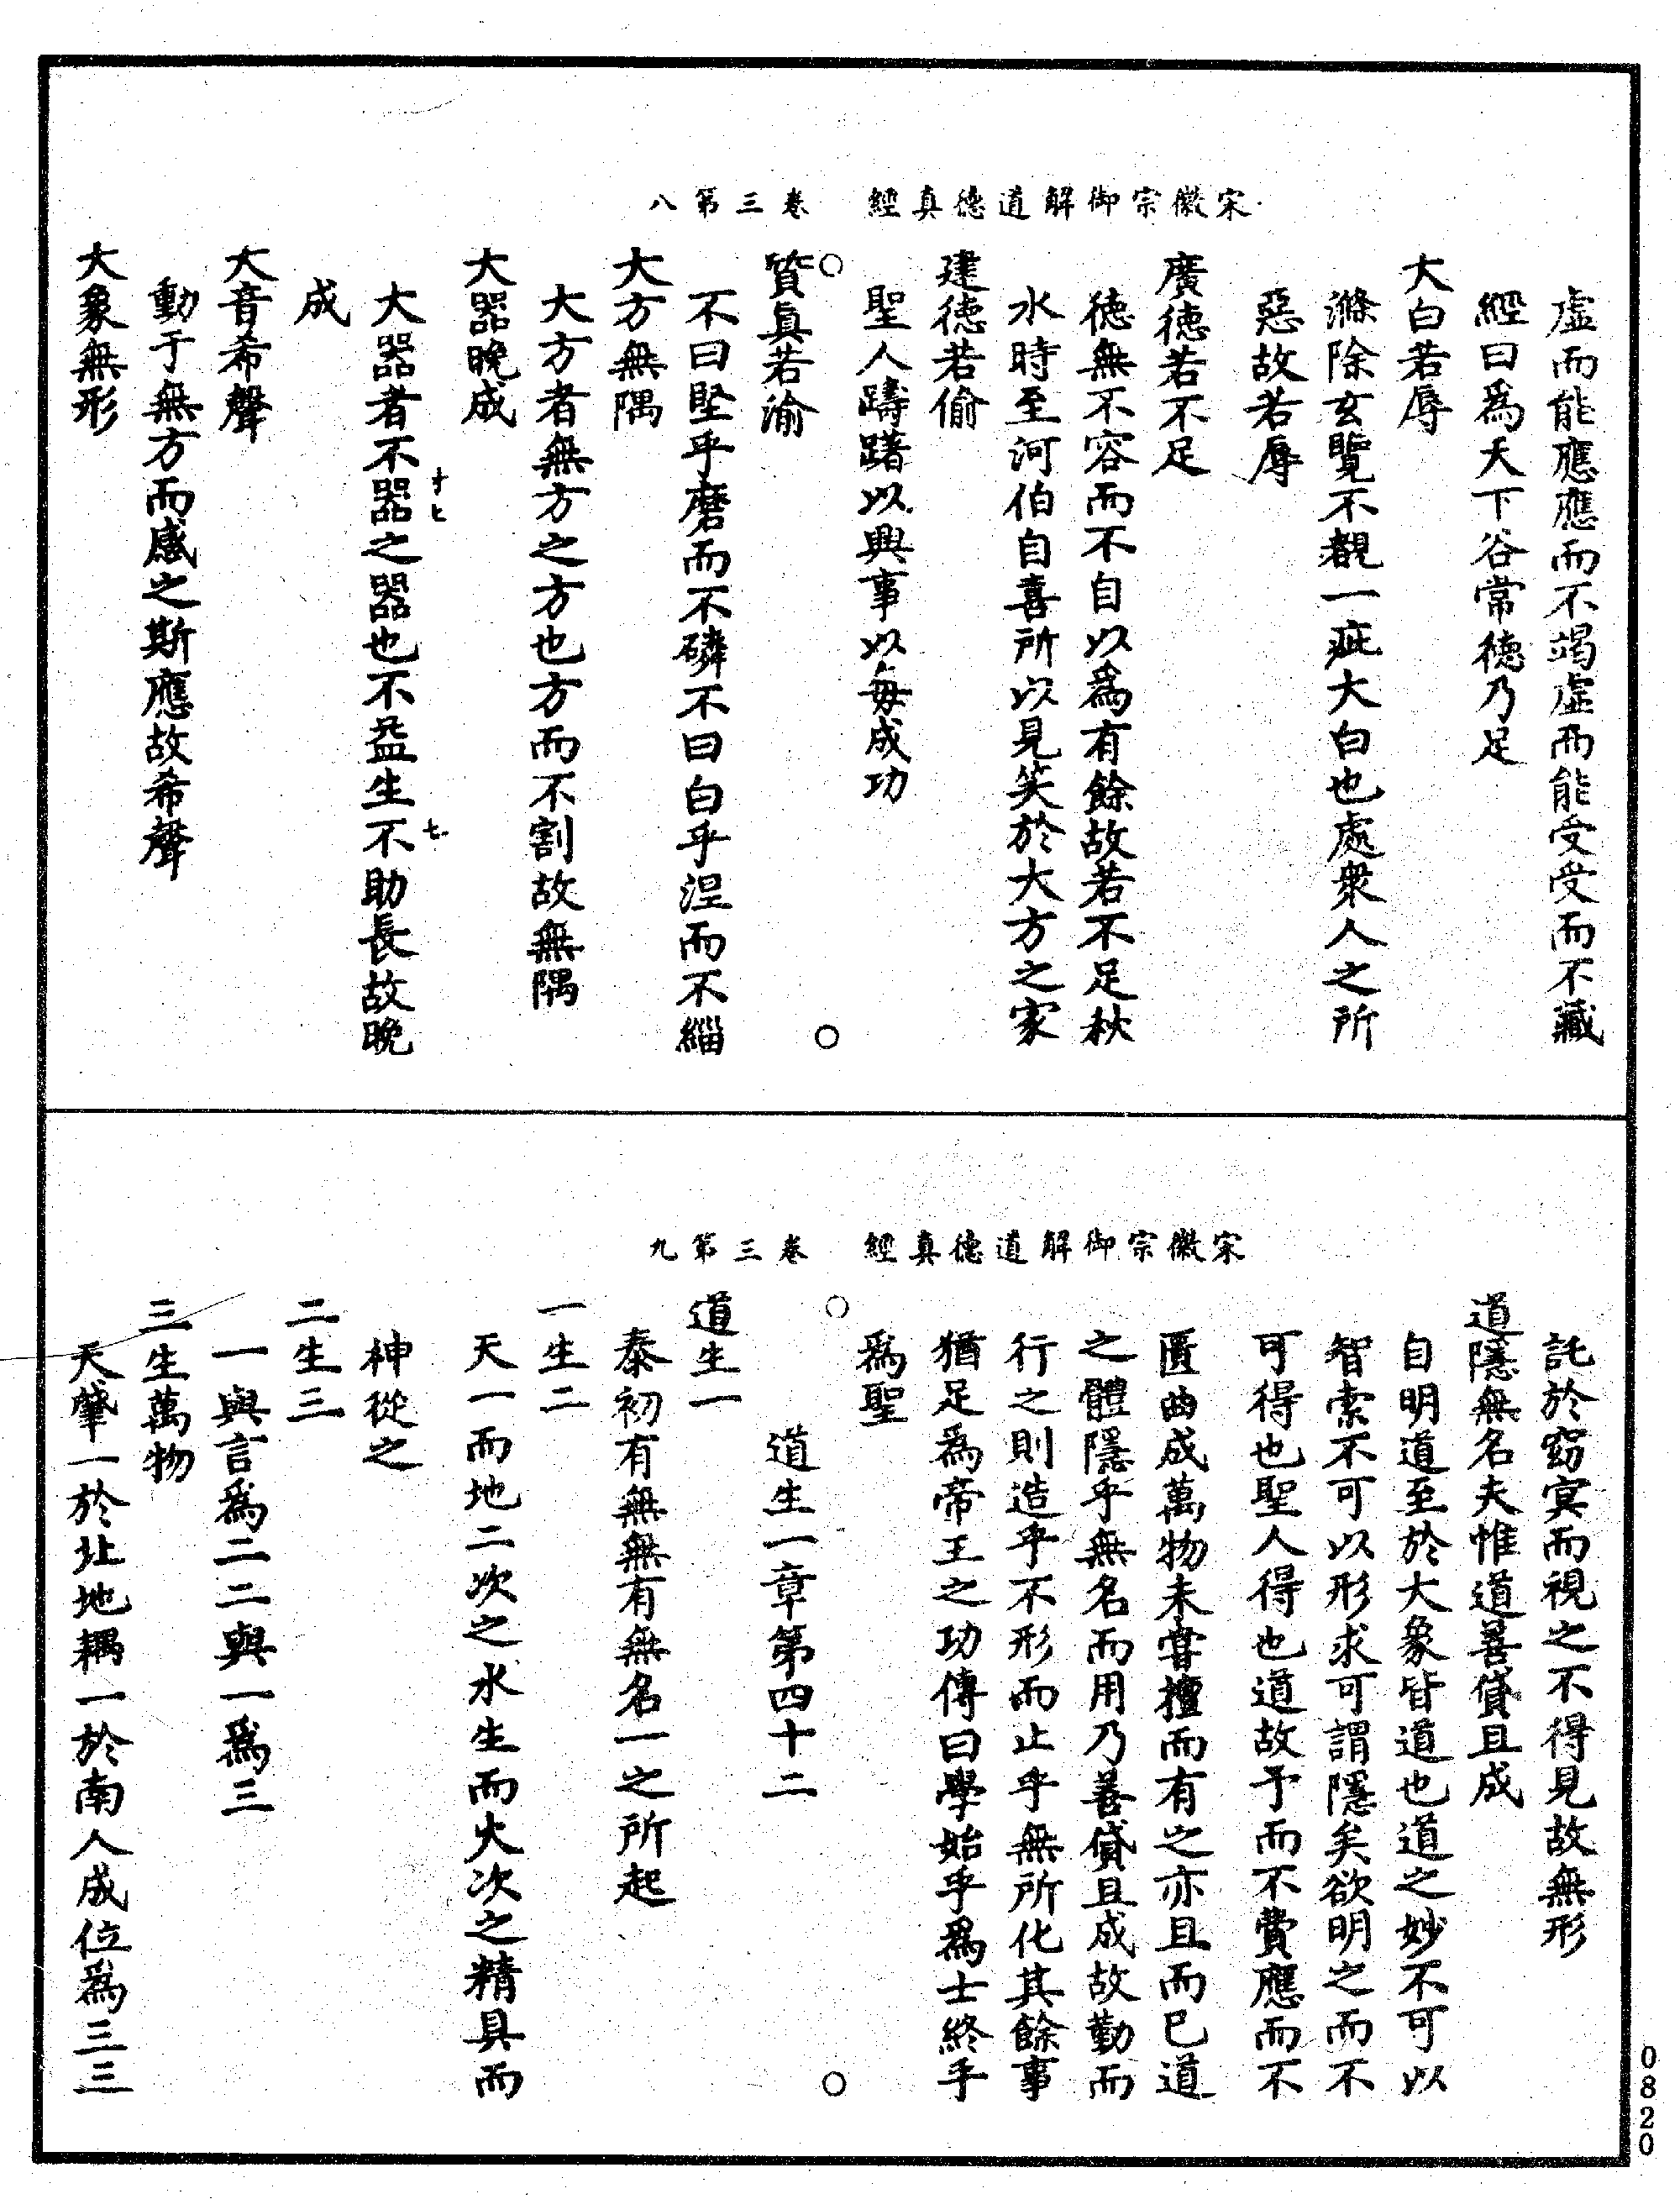 宋徽宗御解道德真經　卷三第八
虛而能應應而不竭虛而能受受而不藏
經曰爲天下谷常德乃足
大白若辱
滌除玄覽不覩一疵大白也處衆人之所
惡故若辱
廣德若不足
德無不容而不自以爲有餘故若不足秋
水時至河伯自喜所以見笑於大方之家
建德若偷
聖人躊躇以興事以每成功
質真若渝
不曰堅乎磨而不磷不曰白乎涅而不緇
大方無隅
大方者無方之方也方而不割故無隅
大器晚成
大器者不器之器也不益生不助長故晚
十七
七
成
大音希聲
動于無方而感之斯應故希聲
大象無形
宋徽宗御解道德真經　卷三第九
託於窈冥而視之不得見故無形
道隱無名夫惟道善貸且成
自明道至於大象皆道也道之妙不可以
智索不可以形求可謂隱矣欲明之而不
可得也聖人得也道故予而不費應而不
匱曲成萬物未甞擅而有之亦且而已道
之體隱乎無名而用乃善貸且成故勤而
行之則造乎不形而止乎無所化其餘事
猶足爲帝王之功傳曰學始乎爲士終乎
爲聖
道生一章第四十二
道生一
泰初有無無有無名一之所起
一生二
天一而地二次之水生而火次之精具而
神從之
二生三
一與言爲二二與一爲三
三生萬物
天肇一於北地耦一於南人成位爲三三
0820